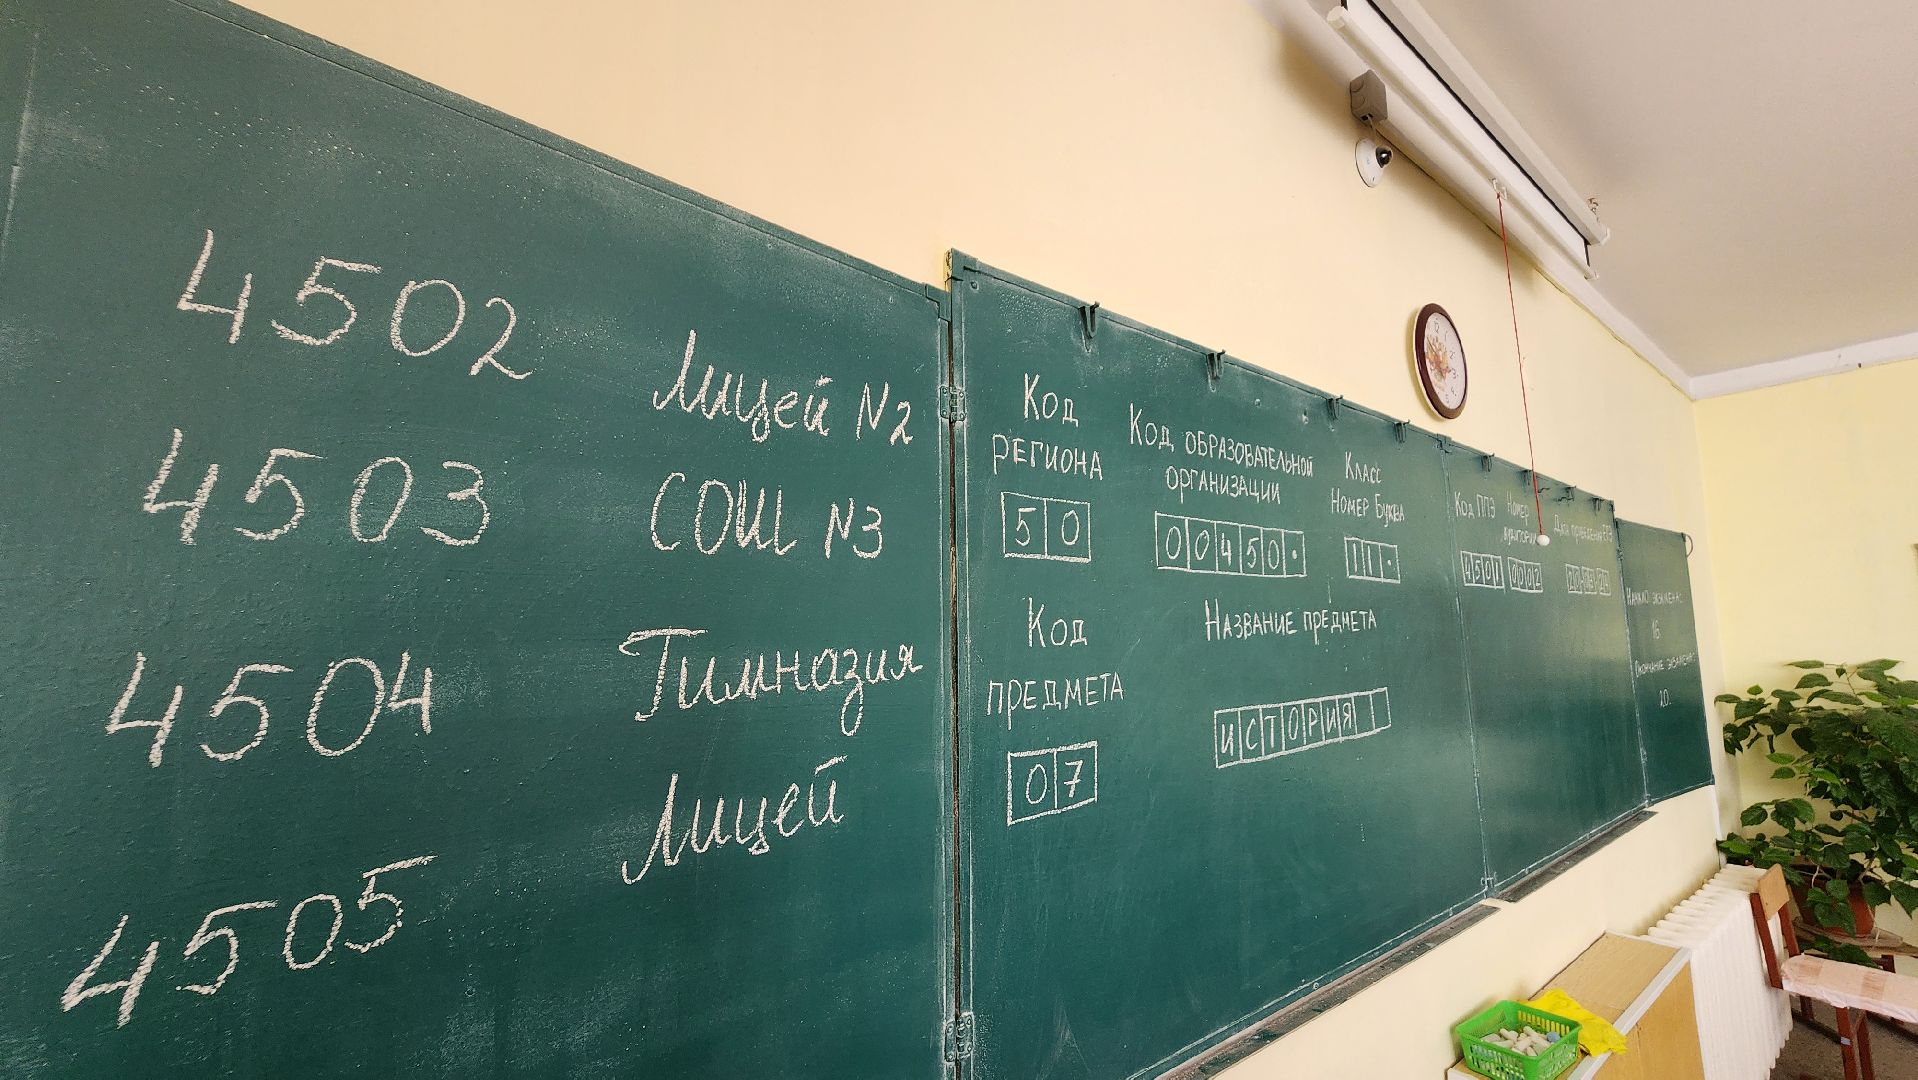 4502 Лицей N2
4503 СОШ N3
4504 Гимназия
4505 Лицей
Код
РЕГИОНА
50
Код ОБРАЗОВАТЕЛЬНОЙ
ОРГАНИЗАЦИИ
00450·
Класс
Номер Буква
11·
Код
ПРЕДМЕТА
07
Название предмета
ИСТОРИЯ
Код ППЭ
4501
Номер
аудитории
0002
Дата проведения ЕГЭ
Начало экзамена:
Окончание экзамена: